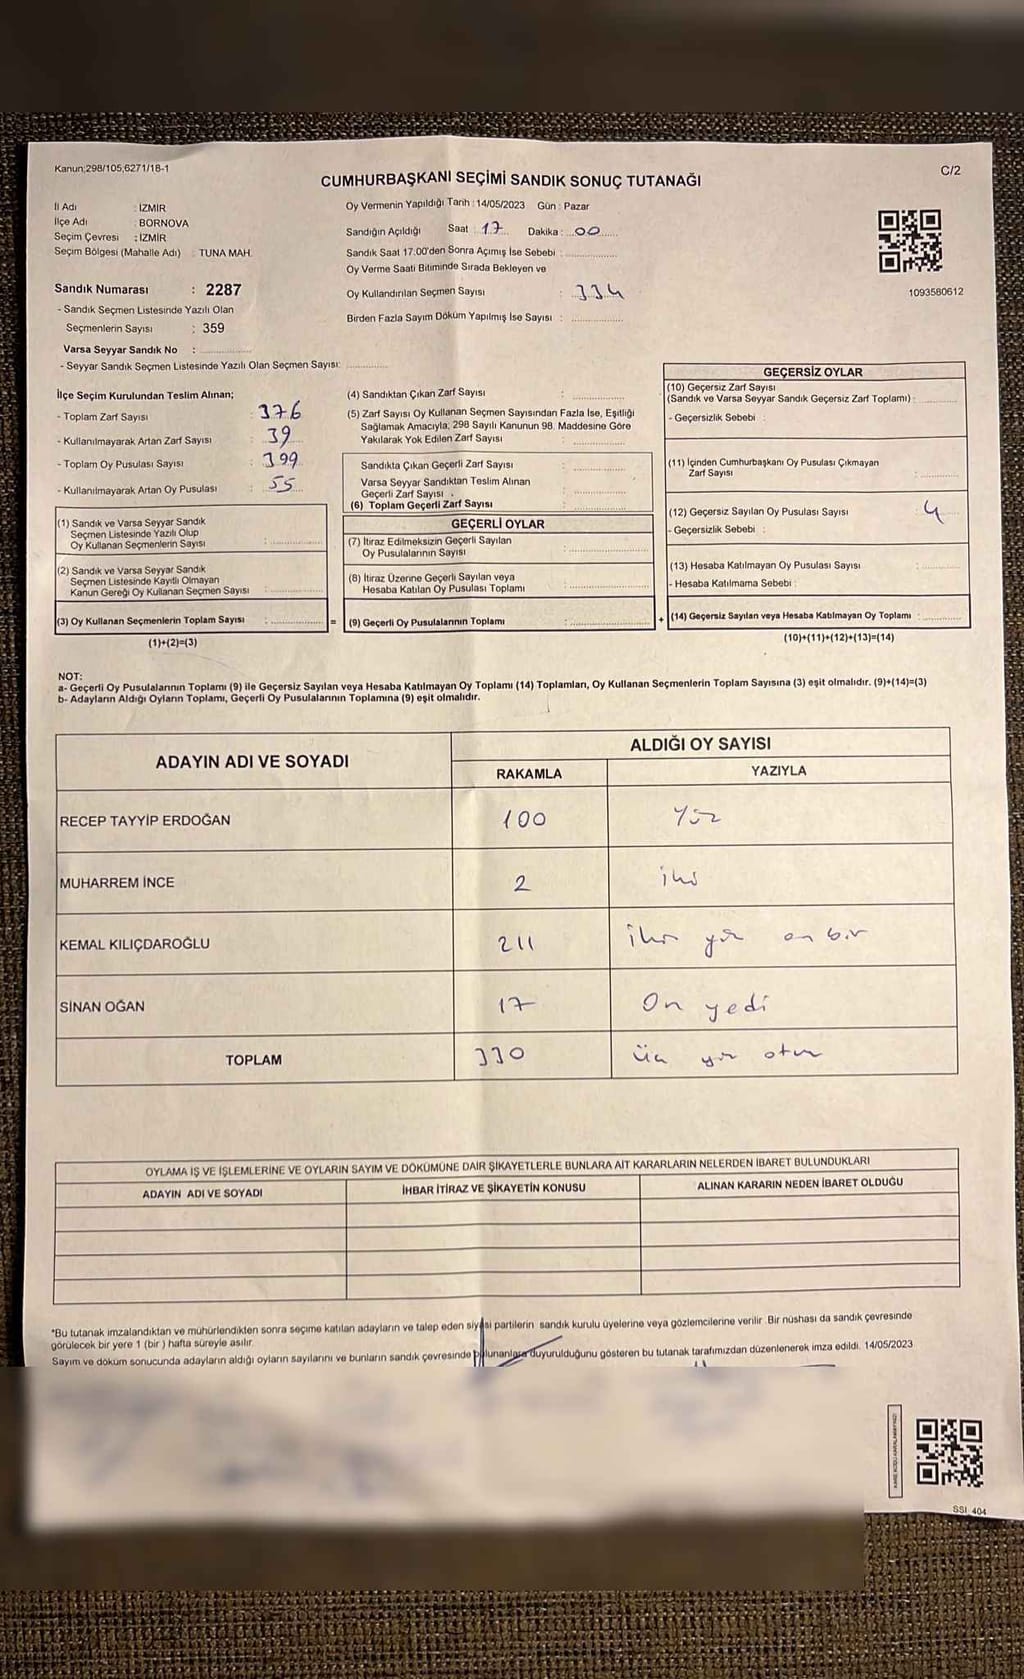 Kanun;298/105;6271/18-1
C/2
CUMHURBAŞKANI SEÇİMİ SANDIK SONUÇ TUTANAĞI
İl Adı : İZMİR
İlçe Adı : BORNOVA
Seçim Çevresi : İZMİR
Seçim Bölgesi (Mahalle Adı) : TUNA MAH.
Sandık Numarası : 2287
- Sandık Seçmen Listesinde Yazılı Olan
Seçmenlerin Sayısı : 359
Varsa Seyyar Sandık No :
- Seyyar Sandık Seçmen Listesinde Yazılı Olan Seçmen Sayısı:
Oy Vermenin Yapıldığı Tarih : 14/05/2023 Gün : Pazar
Sandığın Açıldığı Saat : 17 Dakika : 00
Sandık Saat 17:00'den Sonra Açımış İse Sebebi :
Oy Verme Saati Bitiminde Sırada Bekleyen ve
Oy Kullandırılan Seçmen Sayısı : 334
Birden Fazla Sayım Döküm Yapılmış İse Sayısı :
1093580612
İlçe Seçim Kurulundan Teslim Alınan;
- Toplam Zarf Sayısı : 376
- Kullanılmayarak Artan Zarf Sayısı : 39
- Toplam Oy Pusulası Sayısı : 399
- Kullanılmayarak Artan Oy Pusulası : 55
(1) Sandık ve Varsa Seyyar Sandık
Seçmen Listesinde Yazılı Olup
Oy Kullanan Seçmenlerin Sayısı :
(2) Sandık ve Varsa Seyyar Sandık
Seçmen Listesinde Kayıtlı Olmayan
Kanun Gereği Oy Kullanan Seçmen Sayısı :
(3) Oy Kullanan Seçmenlerin Toplam Sayısı : =
(1)+(2)=(3)
(4) Sandıktan Çıkan Zarf Sayısı :
(5) Zarf Sayısı Oy Kullanan Seçmen Sayısından Fazla İse, Eşitliği
Sağlamak Amacıyla; 298 Sayılı Kanunun 98. Maddesine Göre
Yakılarak Yok Edilen Zarf Sayısı :
Sandıkta Çıkan Geçerli Zarf Sayısı :
Varsa Seyyar Sandıktan Teslim Alınan
Geçerli Zarf Sayısı :
(6) Toplam Geçerli Zarf Sayısı :
GEÇERLİ OYLAR
(7) İtiraz Edilmeksizin Geçerli Sayılan
Oy Pusulalarının Sayısı :
(8) İtiraz Üzerine Geçerli Sayılan veya
Hesaba Katılan Oy Pusulası Toplamı :
(9) Geçerli Oy Pusulalarının Toplamı : +
GEÇERSİZ OYLAR
(10) Geçersiz Zarf Sayısı
(Sandık ve Varsa Seyyar Sandık Geçersiz Zarf Toplamı) :
- Geçersizlik Sebebi :
(11) İçinden Cumhurbaşkanı Oy Pusulası Çıkmayan
Zarf Sayısı :
(12) Geçersiz Sayılan Oy Pusulası Sayısı : 4
- Geçersizlik Sebebi :
(13) Hesaba Katılmayan Oy Pusulası Sayısı :
- Hesaba Katılmama Sebebi :
(14) Geçersiz Sayılan veya Hesaba Katılmayan Oy Toplamı :
(10)+(11)+(12)+(13)=(14)
NOT:
a- Geçerli Oy Pusulalarının Toplamı (9) ile Geçersiz Sayılan veya Hesaba Katılmayan Oy Toplamı (14) Toplamları, Oy Kullanan Seçmenlerin Toplam Sayısına (3) eşit olmalıdır. (9)+(14)=(3)
b- Adayların Aldığı Oyların Toplamı, Geçerli Oy Pusulalarının Toplamına (9) eşit olmalıdır.
ADAYIN ADI VE SOYADI
ALDIĞI OY SAYISI
RAKAMLA YAZIYLA
RECEP TAYYİP ERDOĞAN 100 Yüz
MUHARREM İNCE 2 iki
KEMAL KILIÇDAROĞLU 211 iki yüz on bir
SİNAN OĞAN 17 On yedi
TOPLAM 330 Üç yüz otuz
OYLAMA İŞ VE İŞLEMLERİNE VE OYLARIN SAYIM VE DÖKÜMÜNE DAİR ŞİKAYETLERLE BUNLARA AİT KARARLARIN NELERDEN İBARET BULUNDUKLARI
ADAYIN ADI VE SOYADI İHBAR İTİRAZ VE ŞİKAYETİN KONUSU ALINAN KARARIN NEDEN İBARET OLDUĞU
*Bu tutanak imzalandıktan ve mühürlendikten sonra seçime katılan adayların ve talep eden siyasi partilerin sandık kurulu üyelerine veya gözlemcilerine verilir. Bir nüshası da sandık çevresinde
görülecek bir yere 1 (bir ) hafta süreyle asılır.
Sayım ve döküm sonucunda adayların aldığı oyların sayılarını ve bunların sandık çevresinde bulunanlara duyurulduğunu gösteren bu tutanak tarafımızdan düzenlenerek imza edildi. 14/05/2023
SSI_404